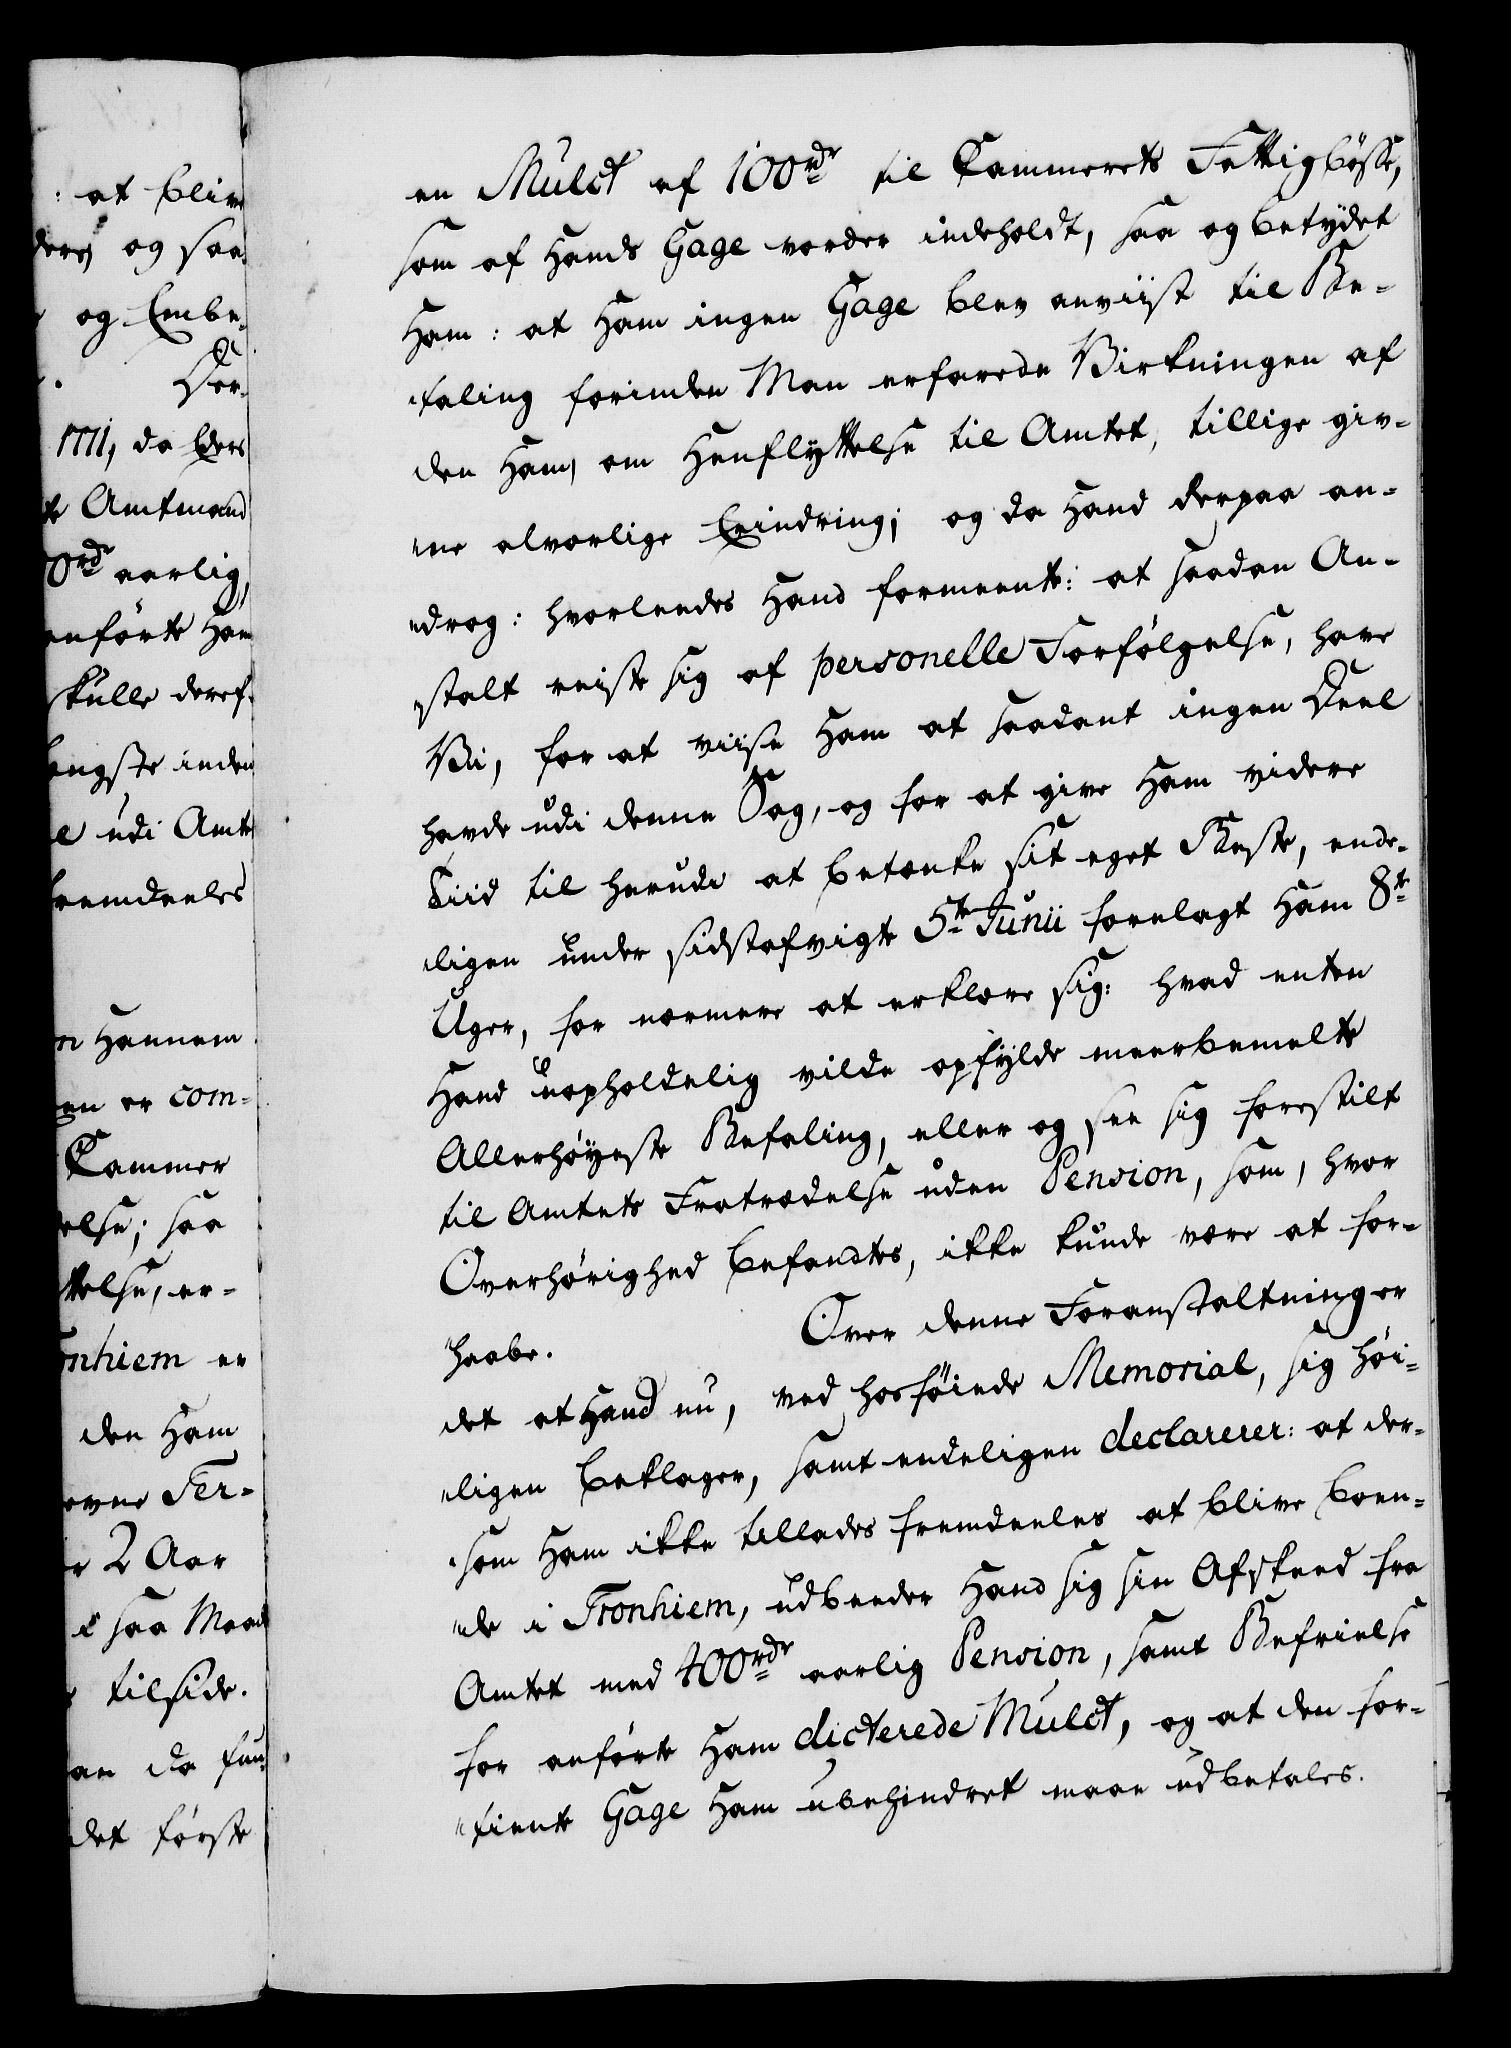 : at blive
ders og saa
og Embe-
Der-
1771, da Eders
te Amtmand
0rdr aarlig,
anførte Ham
skulle deref-
længste inden
e udi Amte
fremdeeles
n Hannem
en er com-
Kammer
else; saa
ttelse, er-
onhiem er
den Ham
evne Ter-
r 2 Aar
saa Maade
tilside.
an da fun-
det første
en Mulct af 100rdr til Kammerets Fattigbøsse,
som af Hands Gage vorder indeholdt, saa og betydet
Ham: at Ham ingen Gage blev anviist til Be-
taling forinden Man erfarede Virkningen af
den Ham, om Henflyttelse til Amtet, tillige giv-
ne alvorlige Erindring; og da Hand derpaa an-
drog: hvorleedes Hand formeente: at saadan An-
stalt reiste sig af personelle Forfølgelse, have
Vi, for at viise Ham at saadant ingen Deel
havde udi denne Sag, og for at give Ham videre
Tiid til herudi at betænke sit eget Beste, ende-
ligen under sidstafvigte 5te Junii forelagt Ham 8te
Uger, for nærmere at erklære sig: hvad enten
Hand uopholdelig vilde opfylde meerbemelte
Allerhøyeste Befaling, eller og see sig forestilt
til Amtets Fratrædelse uden Pension, som, hvor
Overhørighed befandtes, ikke kunde være at for-
haabe. Over denne Foranstaltning er
det at Hand nu, ved hosføiede Memorial, sig høi-
ligen beklager, samt endeligen declarerer: at der-
som Ham ikke tillades fremdeeles at blive boen-
de i Tronhiem, udbeeder Hand sig sin Afskeed fra
Amtet med 400rdr aarlig Pension, samt Befrielse
for anførte Ham dicterede Mulct, og at den for-
tiente Gage Ham ubehindret maae udbetales.